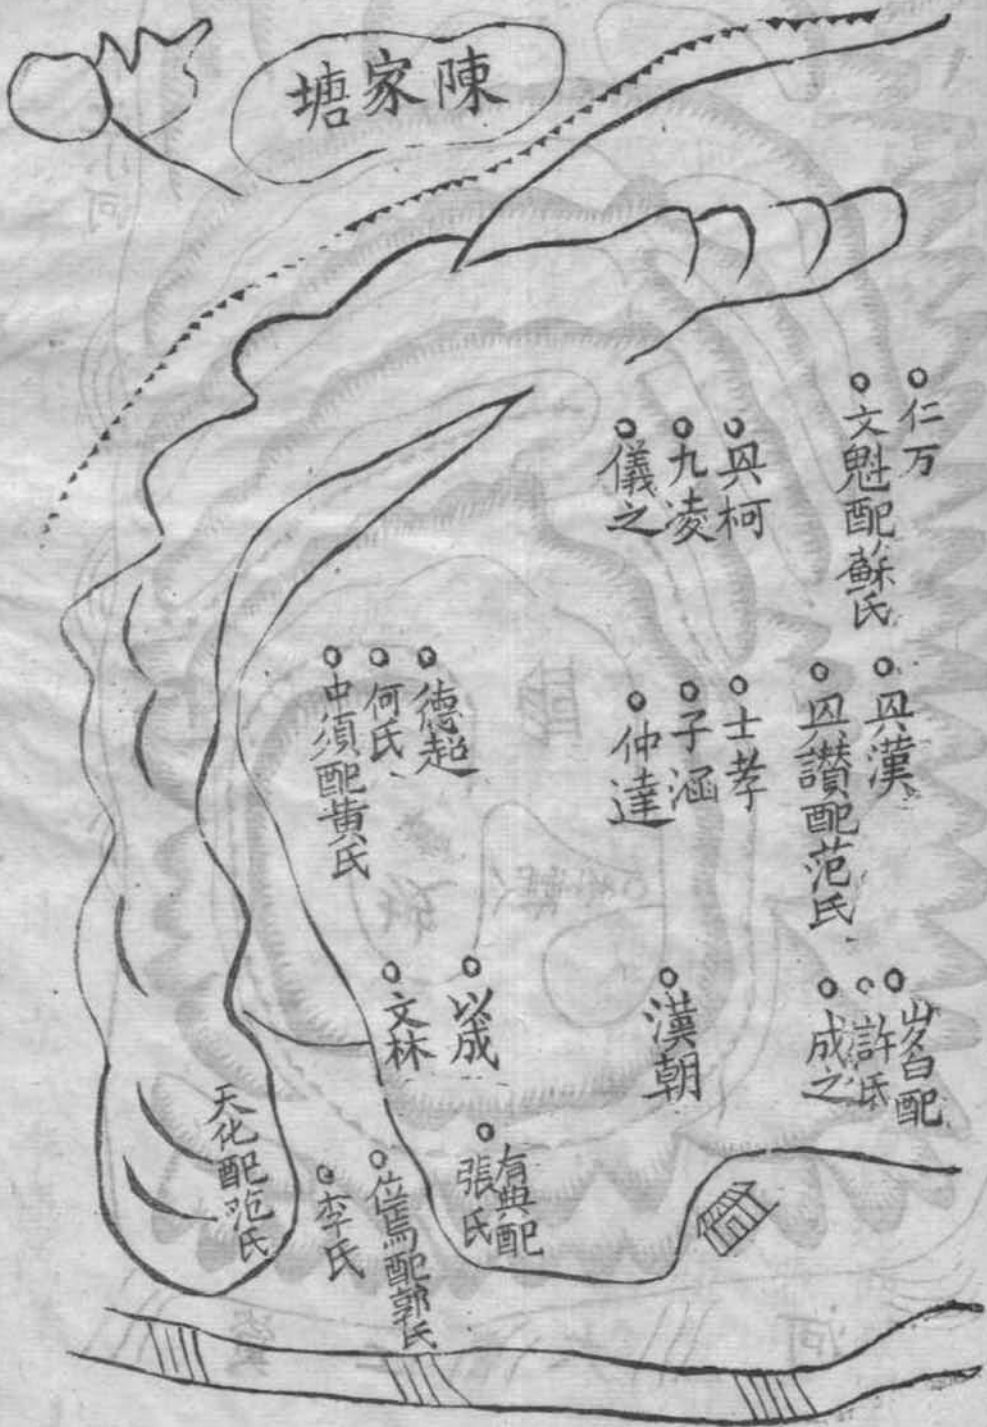 陳家塘
仁万
文魁配蘇氏
與柯
九凌
儀之
與漢
與讃配范氏
士孝
子涵
仲達
德起
何氏
中須配黄氏
配
許氏
成之
漢朝
以成
文林
有典配
張氏
配郭氏
李氏
天化配范氏